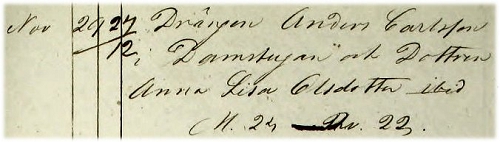 Nov 29 27/12 Drängen Anders Carlsson
i Damstugan och Dottren
Anna Lisa Olsdotter ibid
M. 24 Qv. 22.